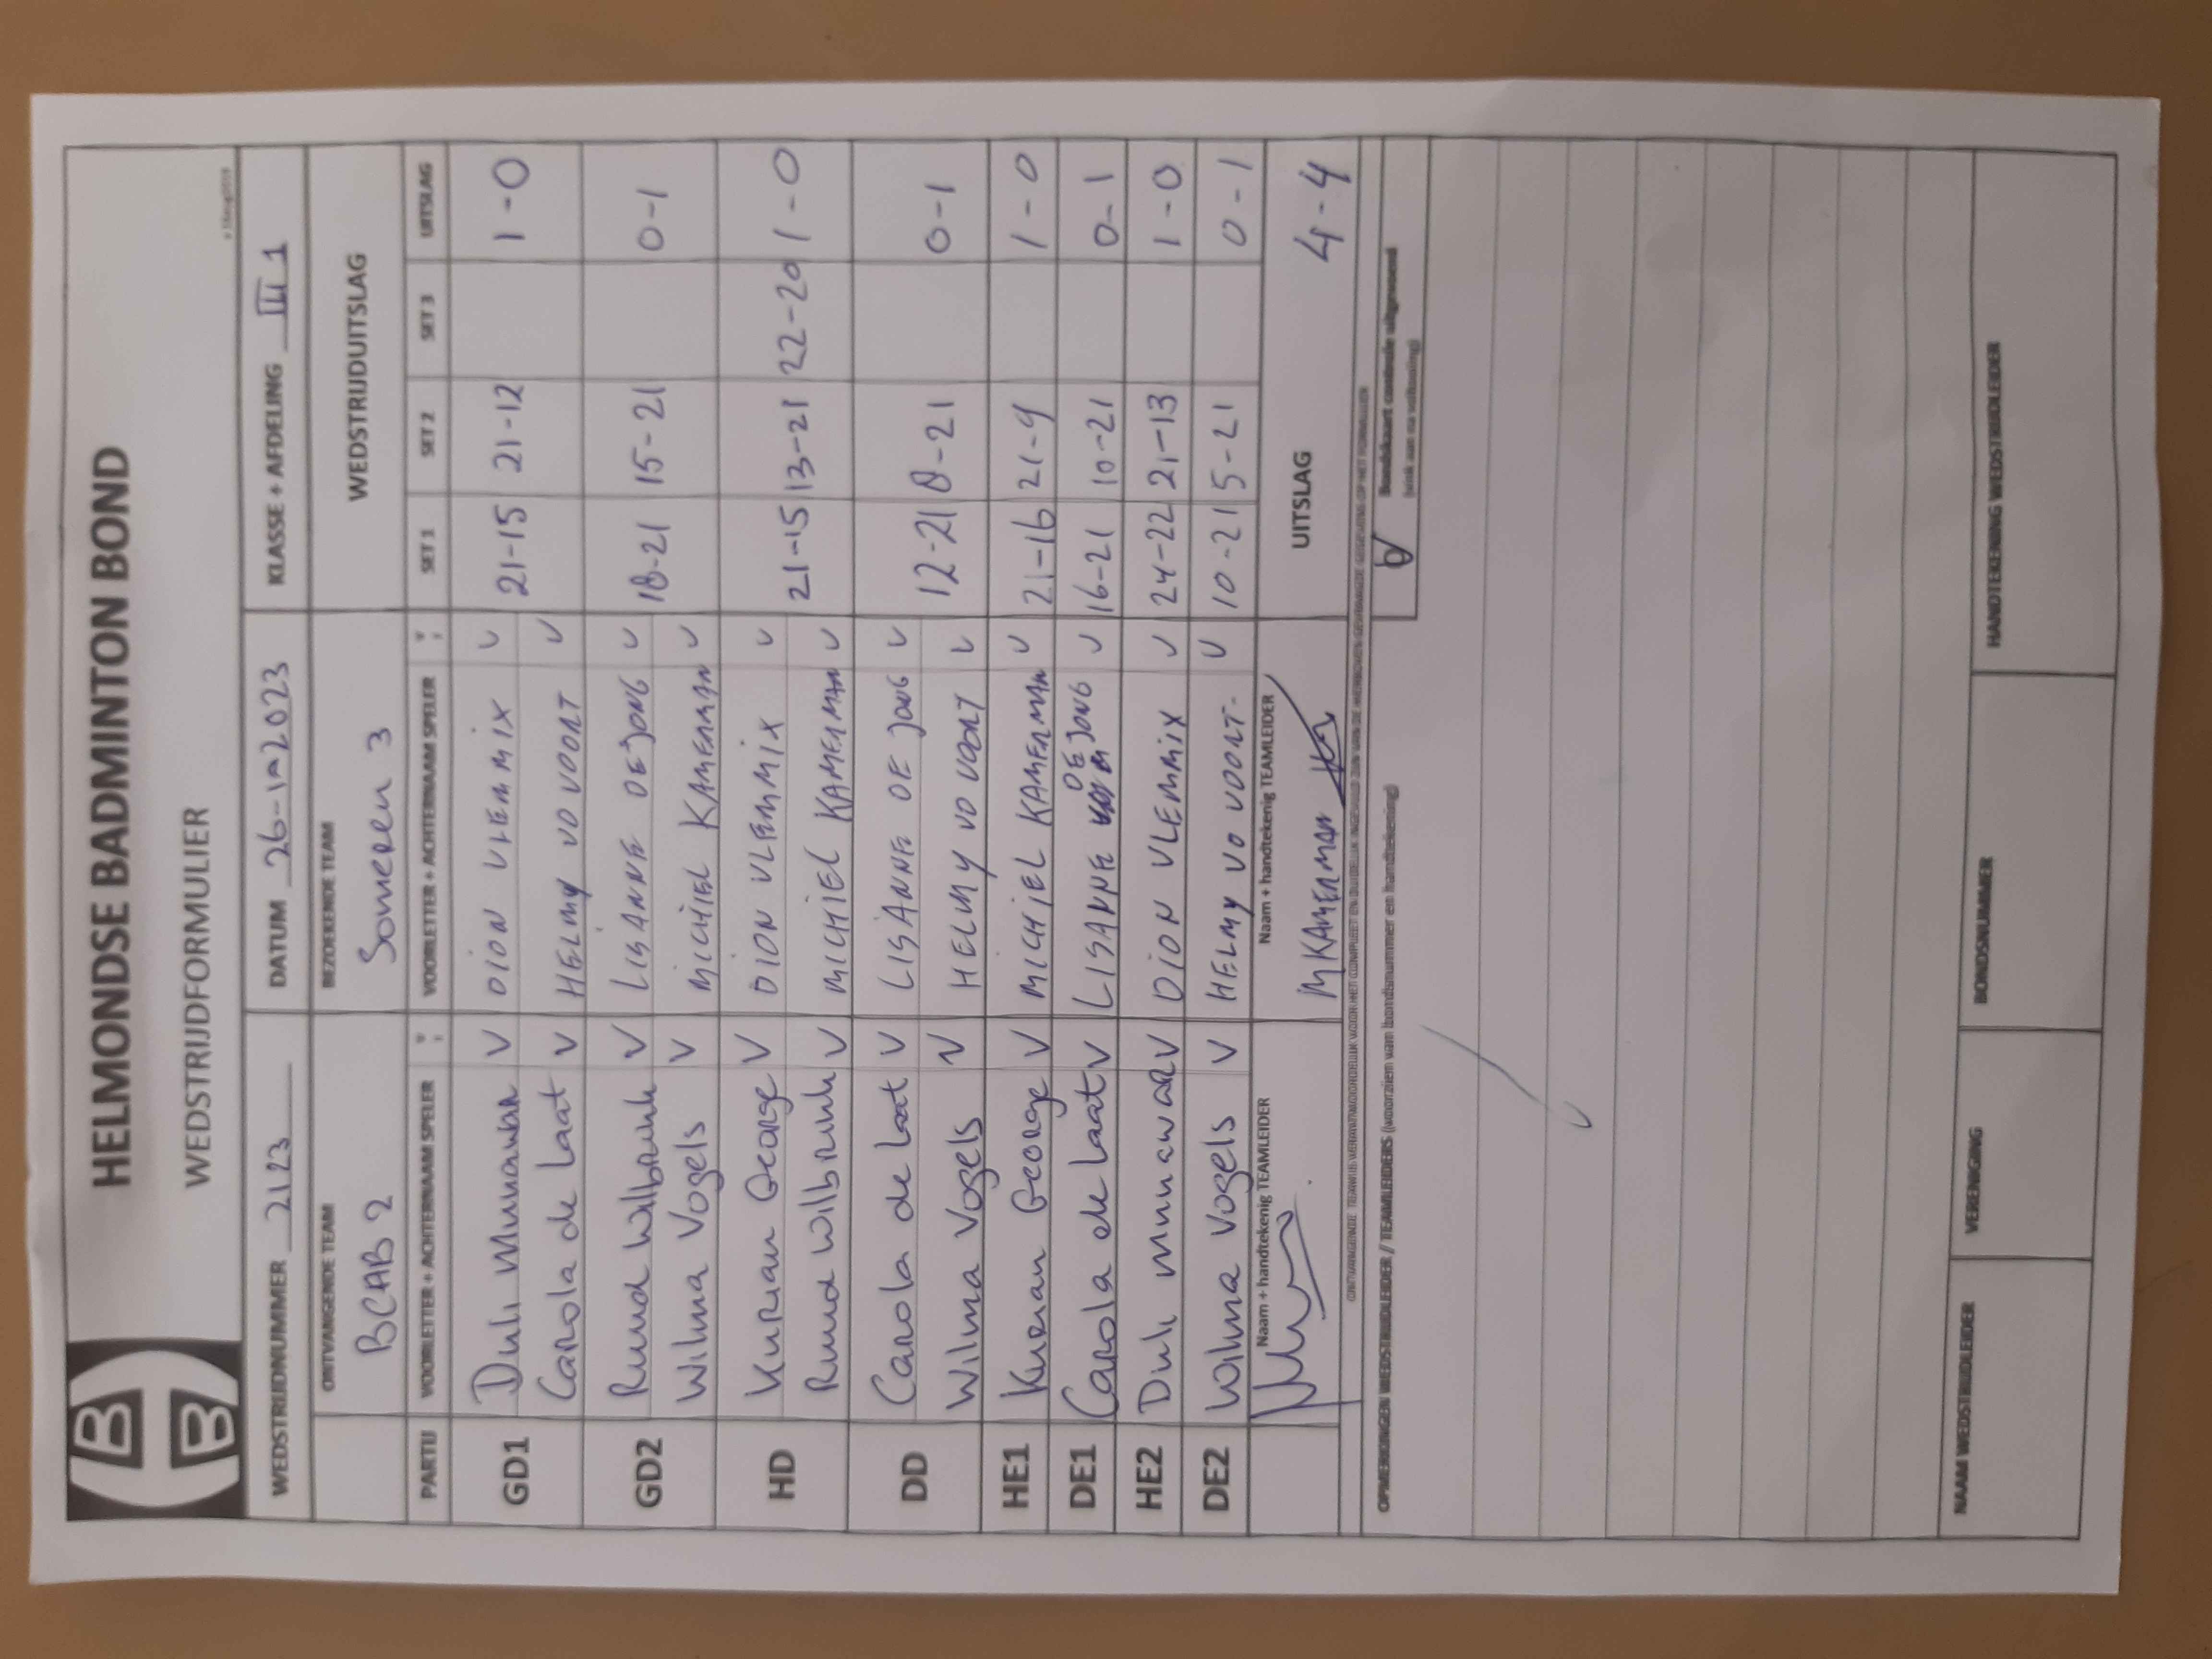 HELMONDSE BADMINTON BOND
WEDSTRIJDFORMULIER
WEDSTRIJDNUMMER 2123 DATUM 26-10-2023 KLASSE + AFDELING III 1
ONTVANGENDE TEAM BEZOEKENDE TEAM WEDSTRIJDUITSLAG
BCAB 2 Someren 3
PARTIJ VOORLETTER + ACHTERNAAM SPELER VOORLETTER + ACHTERNAAM SPELER SET 1 SET 2 SET 3 UITSLAG
GD1 Duli Munawar V DION VLEMMIX V 21-15 21-12 1-0
Carola de Laat V HELMY VD VOORT V
GD2 Ruud Wilbrink V LISANNE DE JONG V 18-21 15-21 0-1
Wilma Vogels V MICHIEL KAMERMAN V
HD Kurian George V DION VLEMMIX V 21-15 13-21 22-20 1-0
Ruud Wilbrink V MICHIEL KAMERMAN V
DD Carola de Laat V LISANNE DE JONG V 12-21 8-21 0-1
Wilma Vogels V HELMY VD VOORT V
HE1 Kurian George V MICHIEL KAMERMAN V 21-16 21-9 1-0
DE1 Carola de Laat V LISANNE DE JONG V 16-21 10-21 0-1
HE2 Duli Munawar V DION VLEMMIX V 24-22 21-13 1-0
DE2 Wilma Vogels V HELMY VD VOORT V 10-21 5-21 0-1
Naam + handtekenig TEAMLEIDER Naam + handtekenig TEAMLEIDER UITSLAG 4-4
M KAMERMAN
Bondskaart controle uitgevoerd
OPMERKINGEN WEDSTRIJDLEIDER / TEAMLEIDERS (voorzien van bondsnummer en handtekening)
NAAM WEDSTRIJDLEIDER VERENIGING BONDSNUMMER HANDTEKENING WEDSTRIJDLEIDER